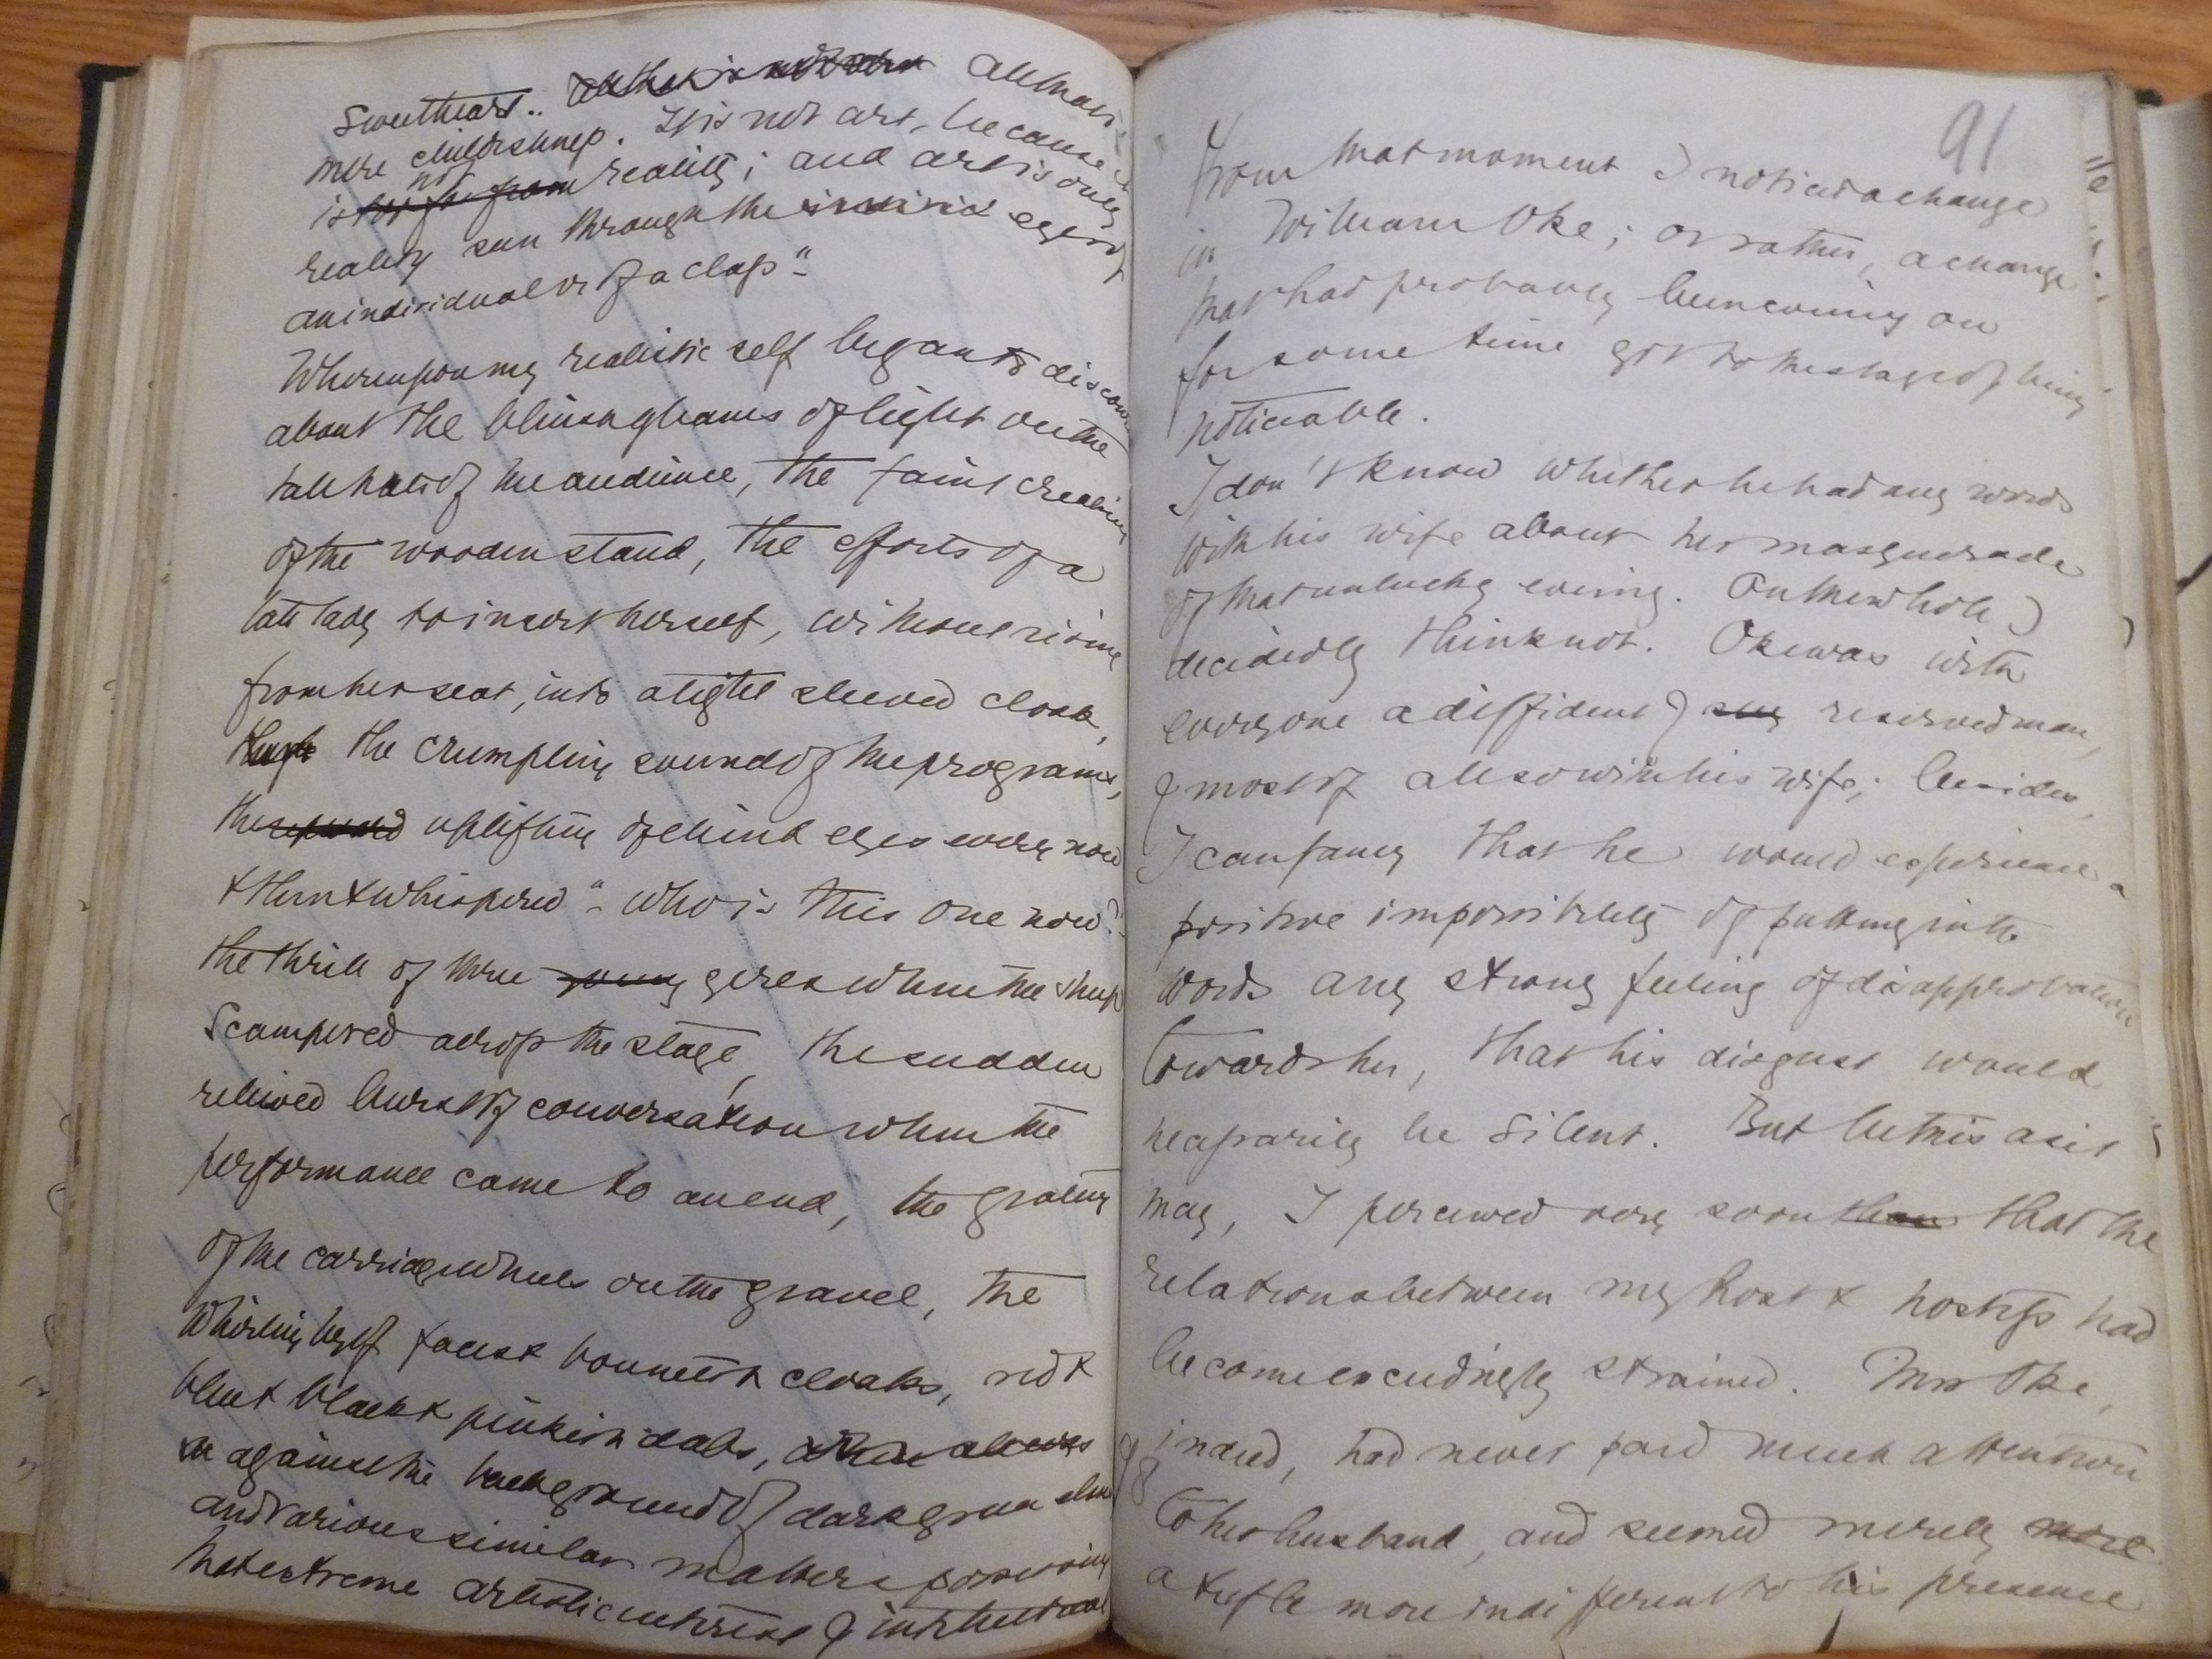 Sweetheart.. All that is
mere childishness. It is not art, because
is not reality; and art is only
reality seen through the eyes of
an individual or of a class"-
Whereupon my realistic self began to
about the gleams of light on the
tall hats of the audience, the faint creaking
of the wooden stand, the efforts of a
late lady to insert herself, without rising
from her seat, into a tight sleeved cloak,
the crumpling sound of the programs,
the uplifting of blind eyes every now
& then & whispered "- who is this one now?"-
the thrill of three young girls when the sheep
scampered across the stage, the sudden
relieved burst of conversation when the
performance came to an end, the grating
of the carriage wheels on the gravel, the
whirling by of faces & bonnets & cloaks, red &
blue & black & pinkish dabs,
against the background of dark green elms
and various similar matters possessing
that extreme artistic interest & intellectual
91
From that moment I noticed a change
in William Oke; or rather, a change
that had probably been coming on
for some time got to the stage of being
noticeable.
I don't know whether he had any words
with his wife about her masquerade
of that unlucky evening. On the whole I
decidedly think not. Oke was with
everyone a diffident & reserved man,
& most of all so with his wife; besides,
I can fancy that he would experience a
positive impossibility of putting into
words any strong feeling of disapprobation
towards her, that his disgust would
necessarily be silent. But be this as it
may, I perceived very soon that the
relations between my host & hostess had
become exceedingly strained. Mrs Oke,
indeed, had never paid much attention
98
to her husband, and seemed merely more
a trifle more indifferent to his presence